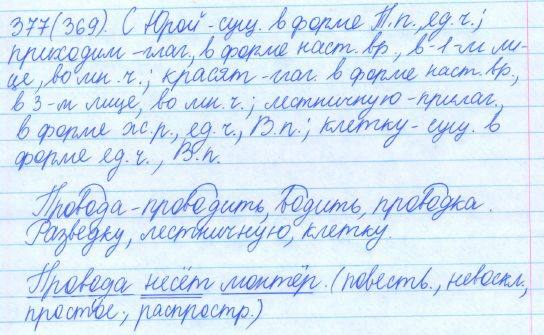 377(369). С Юрой - сущ. в форме Т.п., ед.ч.;
приходим - глаг., в форме наст. вр., в 1-м ли-
це, во мн. ч.; красят - глаг. в форме наст. вр.,
в 3-м лице, во мн. ч.; лестничную - прилаг.,
в форме ж.р., ед.ч., В.п.; клетку - сущ. в
форме ед.ч., В.п.
Провода - проводить, водить, проводка.
Разведку, лестничную, клетку.
Провода несёт монтёр. (повеств., невоскл.,
простое, распростр.)